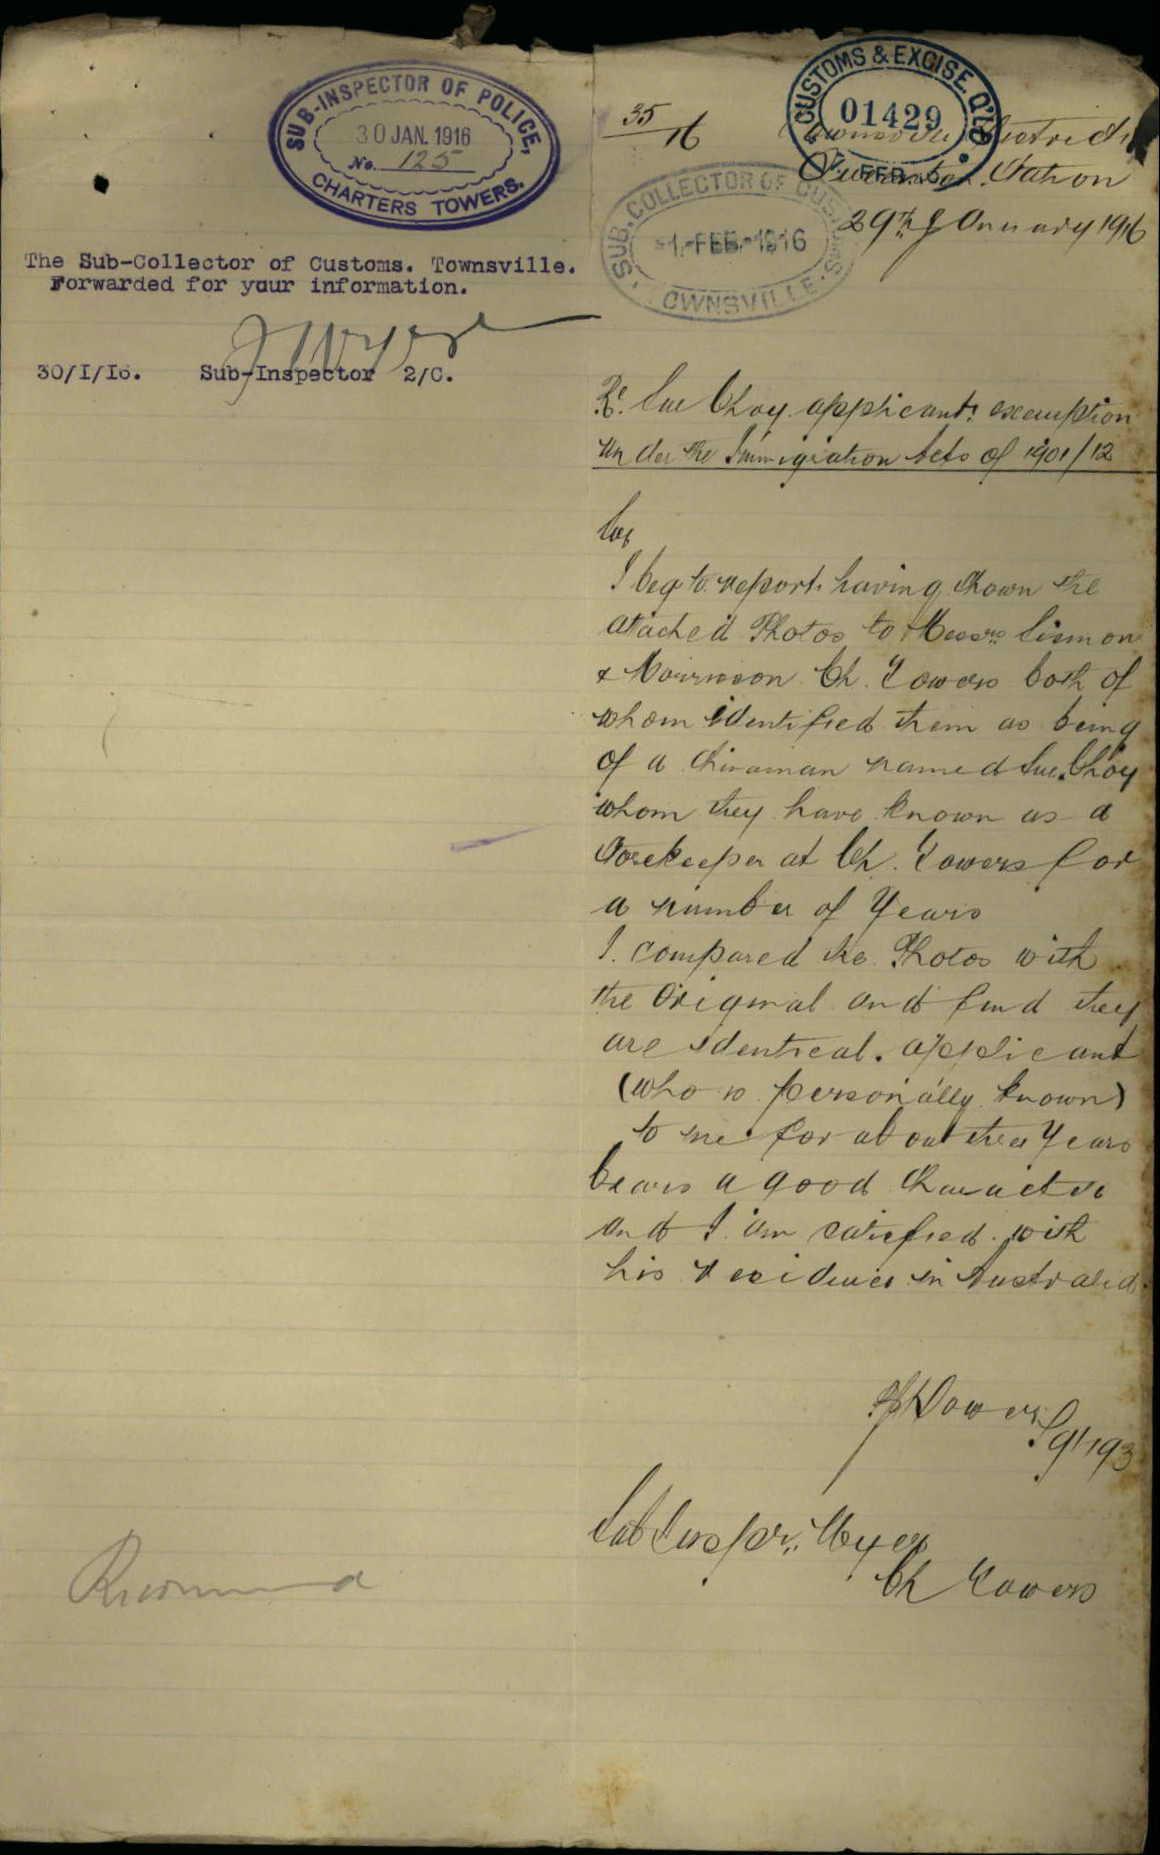 SUB-INSPECTOR OF POLICE,
30 JAN. 1916
No. 125
CHARTERS TOWERS.
The Sub-Collector of Customs. Townsville.
Forwarded for your information.
30/I/I6. Sub-Inspector 2/C.
35/16
CUSTOMS & EXCISE. Q'LD
01429
FEB.
Townsville District
Station
29th January 1916
SUB. COLLECTOR OF CUSTOMS
1-FEB.-1916
OWNSVILLE
Re. Sue Choy applicant: exemption
under the Immigration Acts of 1901/12
Sir
I beg to report. having Shown the
attached Photos to Messrs
& Morrison Ch. Towers both of
whom identified them as being
of a Chinaman named Sue Choy
whom they have known as a
Storekeeper at Ch. Towers for
a number of Years
I. compared the Photos with
the Original and find they
are identical. applicant
(who is personally known)
to me for about three Years
bears a good Character
and I am satisfied with
his residence in Australia.
Sgt 193
Sub Inspr. Meyer
Ch Towers